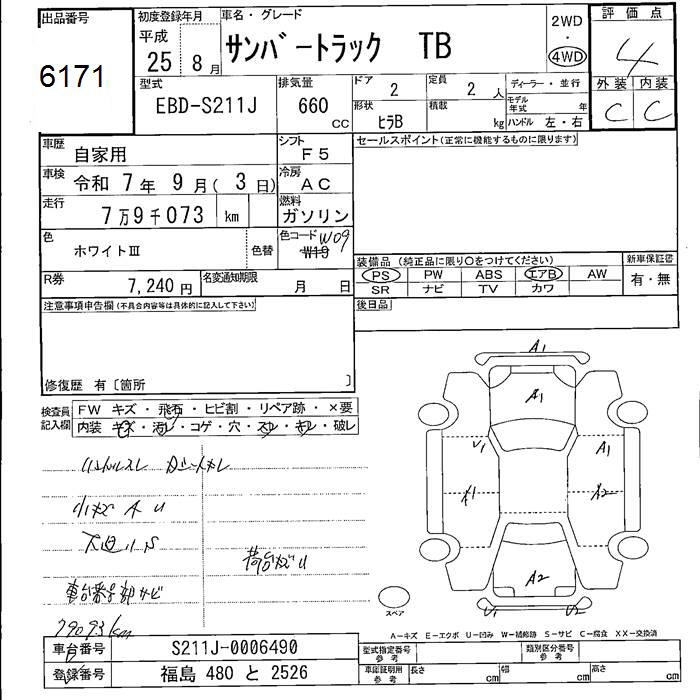 出品番号
6171
初度登録年月
平成
25 8 月
車名・グレード
サンバートラック TB
2WD
・
4WD
評価点
4
外装 内装
C C
型式
EBD-S211J
排気量
660
CC
ドア 2
定員 2 人
形状 ヒラB
積載 kg
ディーラー・並行
モデル年式 年
ハンドル 左・右
車歴 自家用
シフト F5
セールスポイント(正常に機能するものに限ります)
車検 令和 7年 9月( 3日)
冷房 AC
走行 7万9千073 km
燃料 ガソリン
色 ホワイトⅢ 色替
色コード W09
W19
装備品(純正品に限り○をつけてください)
新車保証書
PS PW ABS エアB AW
SR ナビ TV カワ
有・無
R券 7,240円
名変通知期限 月 日
後日品
注意事項申告欄(不具合内容等は具体的に記入して下さい)
修復歴 有〔箇所 〕
検査員
記入欄
FW キズ・飛石・ヒビ割・リペア跡・×要
内装・キズ・汚レ・コゲ・穴・スレ・キレ・破レ
小キズ A U
下廻りS
荷台キズU
車台番号部サビ
79093km
A1
A1
U1
A1
A1
A2
A2
U1 U2
スペア
A-キズ E-エクボ U-凹み W-補修跡 S-サビ C-腐食 XX-交換済
車台番号 S211J-0006490
登録番号 福島 480 と 2526
型式指定番号
参考
類別区分番号
参考
車庫証明用
参考
長さ cm
幅 cm
高さ cm